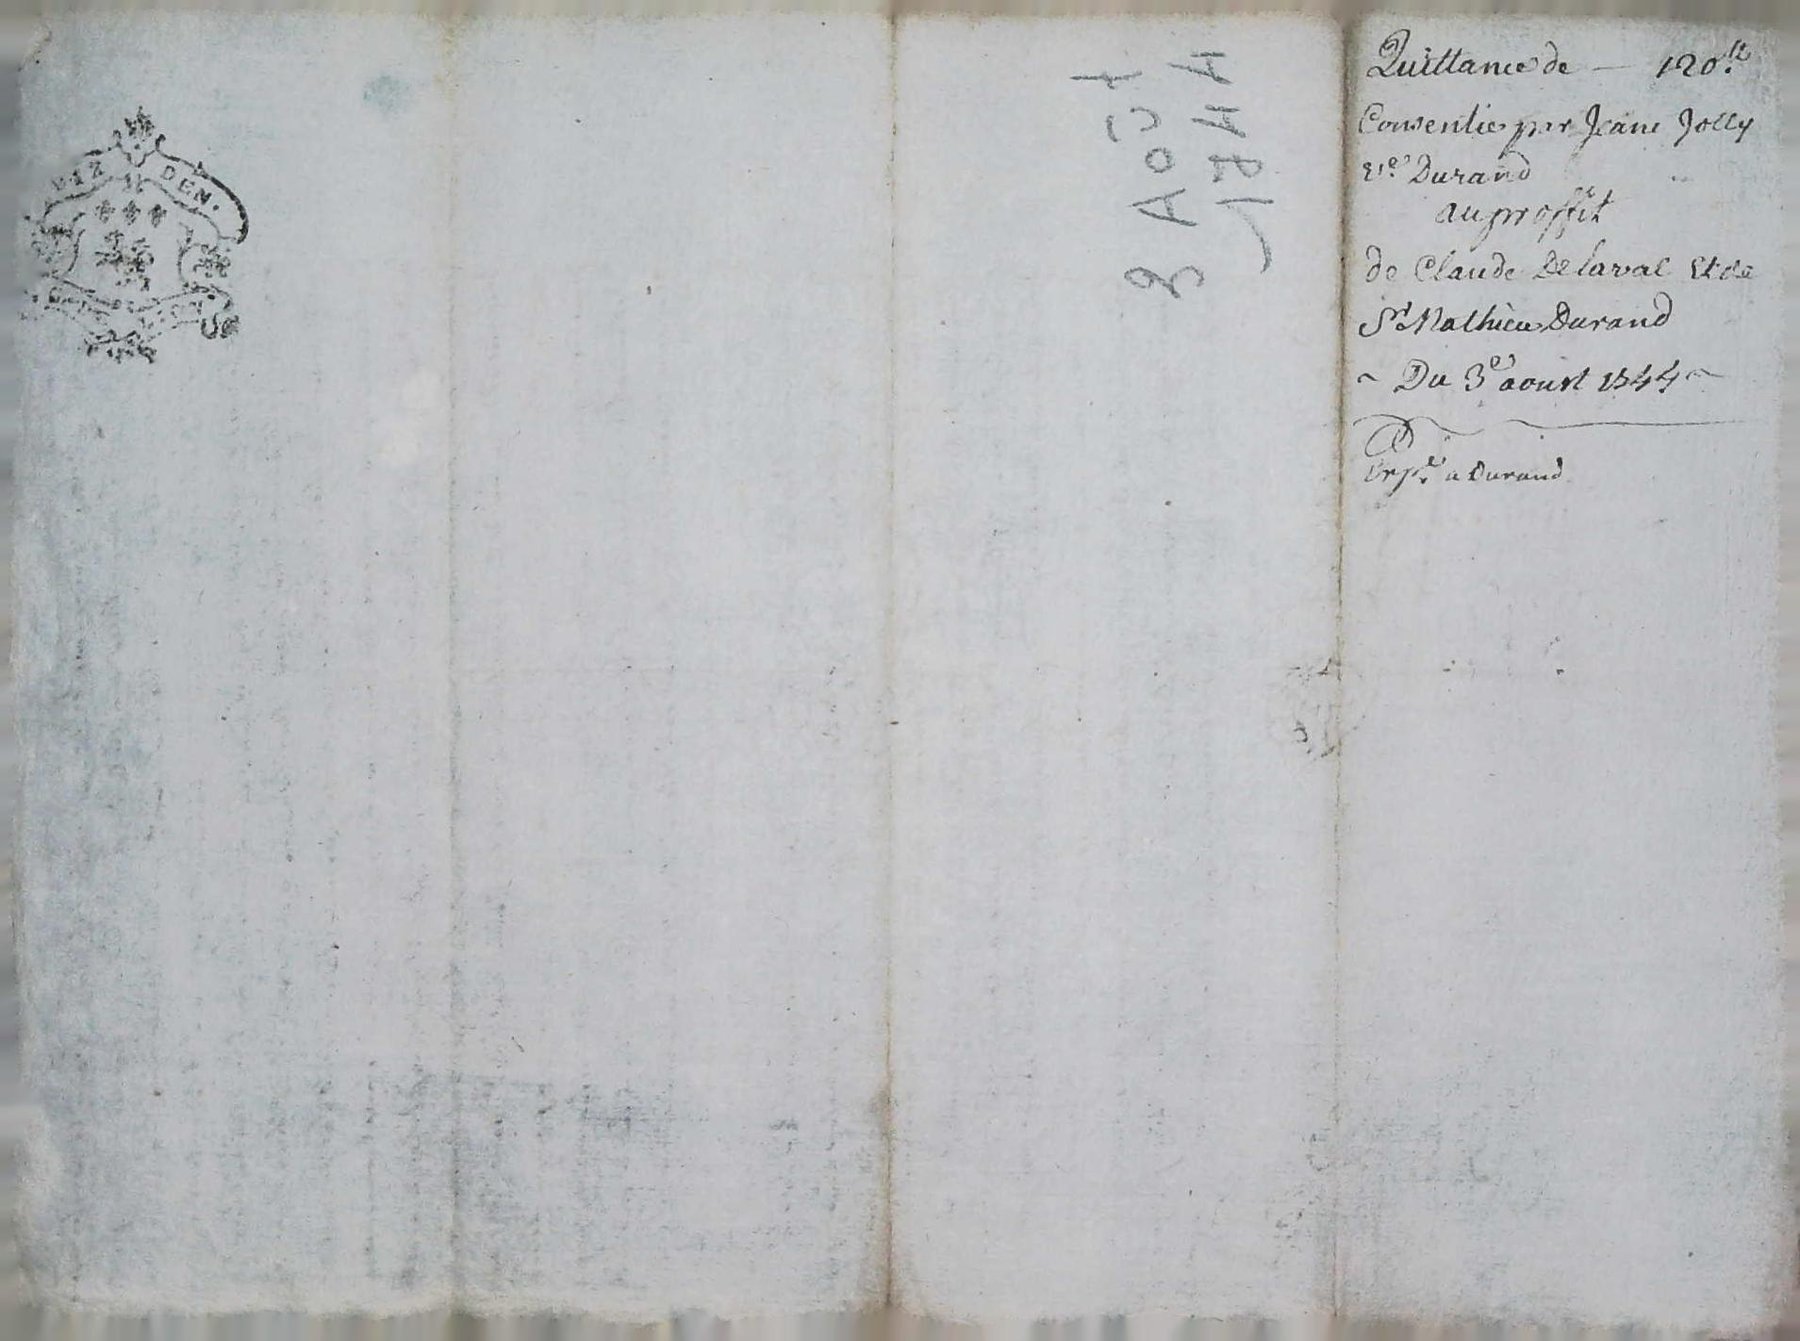 SIX DEN.
3 Aout
1744
Quittance de — 120.lt
Consentie par Jeanne Jolly
Ve. Durand
au proffit
de Claude Delaval Et de
Sr Mathieu Durand
~ Du 3e aoust 1744 ~
Expe. a Durand